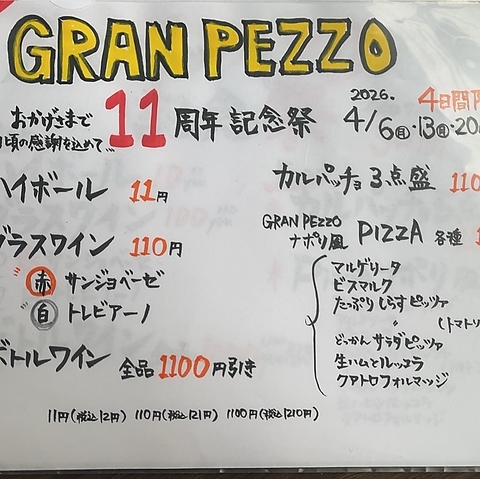 GRAN PEZZO
おかげさまで 11周年記念祭
頃の感謝を込めて...
2026. 4日間
4/6㊊・13㊊・20
ハイボール 11円
グラスワイン 110円
赤 サンジョベーゼ
白 トレビアーノ
ボトルワイン 全品1100円引き
カルパッチョ3点盛 110
GRAN PEZZO
ナポリ風 PIZZA 各種 1
マルゲリータ
ビスマルク
たっぷりしらすピッツァ
〃 (トマトソ
どっかんサラダピッツァ
生ハムとルッコラ
クアトロフォルマッジ
11円(税込12円) 110円(税込121円) 1100円(税込1210円)